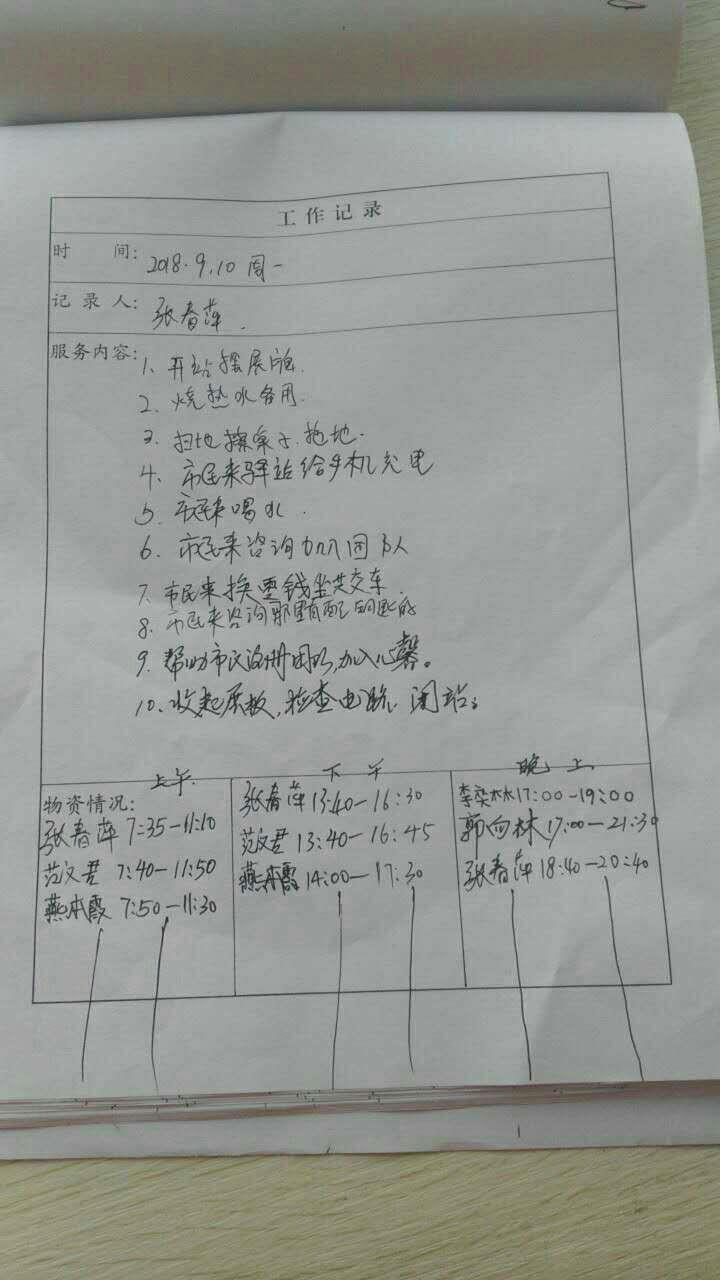 工作记录
时 间: 2018.9.10 周一
记录人: 张春萍.
服务内容:
1、开站摆展板.
2、烧热水备用.
3、扫地擦桌子.拖地.
4、市民来驿站给手机充电
5、市民来喝水.
6、市民来咨询加入团队
7、市民来换零钱坐公交车.
8、市民来咨询那里有配钥匙的
9、帮助市民注册团队,加入心馨。
10、收起展板,检查电路.闭站。
上午 下午 晚上
物资情况:
张春萍 7:35—11:10
范文君 7:40—11:50
燕霞 7:50—11:30
张春萍 13:40—16:30
范文君 13:40—16:45
燕霞 14:00—17:30
李林 17:00—19:00
郭向林 17:00—21:30
张春萍 18:40—20:40